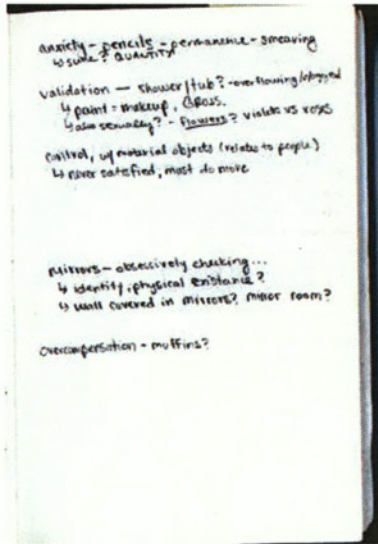 anxiety - pencils - permanence - smearing
↳ ? QUANTITY
validation — shower/tub? - overflowing/clogged
↳ paint = makeup, GROSS.
↳ also sexually? - flowers? violets vs roses
control, w/ material objects (relates to people)
↳ never satisfied, must do more
mirrors - obsessively checking...
↳ identity, physical existance?
↳ wall covered in mirrors? mirror room?
overcompensation - muffins?